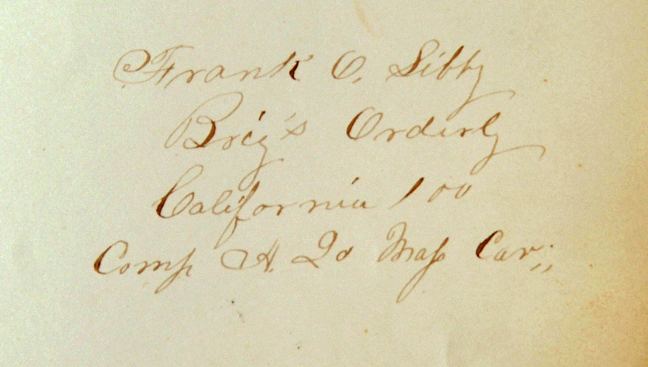 Frank O. Libby
Brig's Orderly
California 100
Comp A. 2d Mass Cav;,